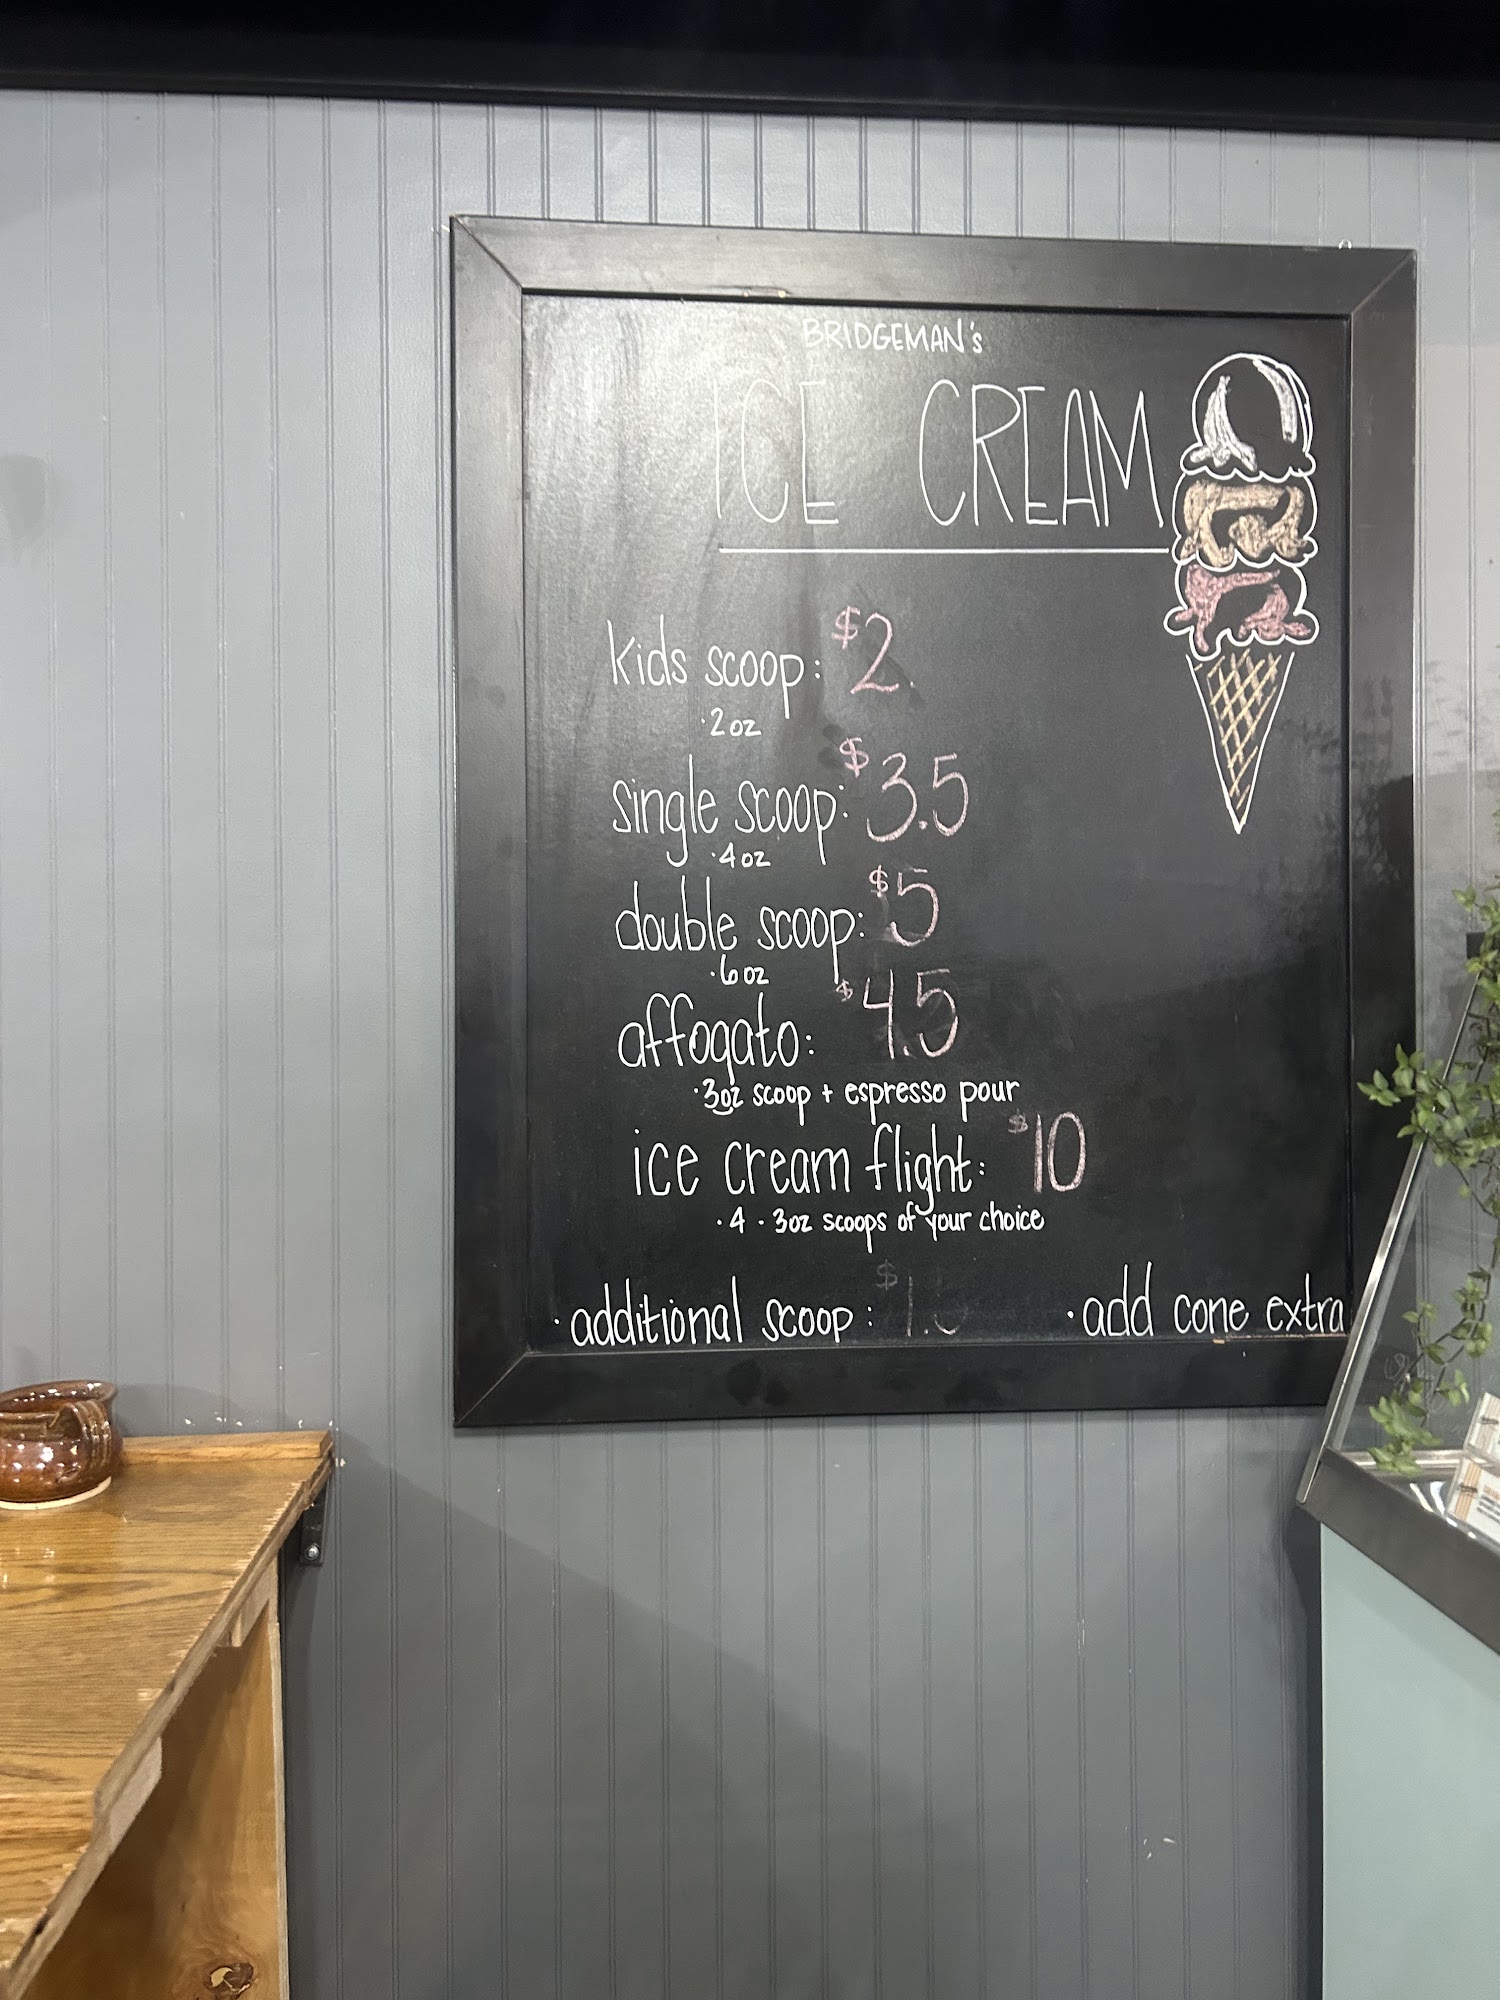 BRIDGEMAN's
ICE CREAM
kids scoop: $2.
·2oz
single scoop: $3.5
·4oz
double scoop: $5
·6oz
affogato: $4.5
·3oz scoop + espresso pour
ice cream flight: $10
·4 - 3oz scoops of your choice
·additional scoop: $1.5
·add cone extra